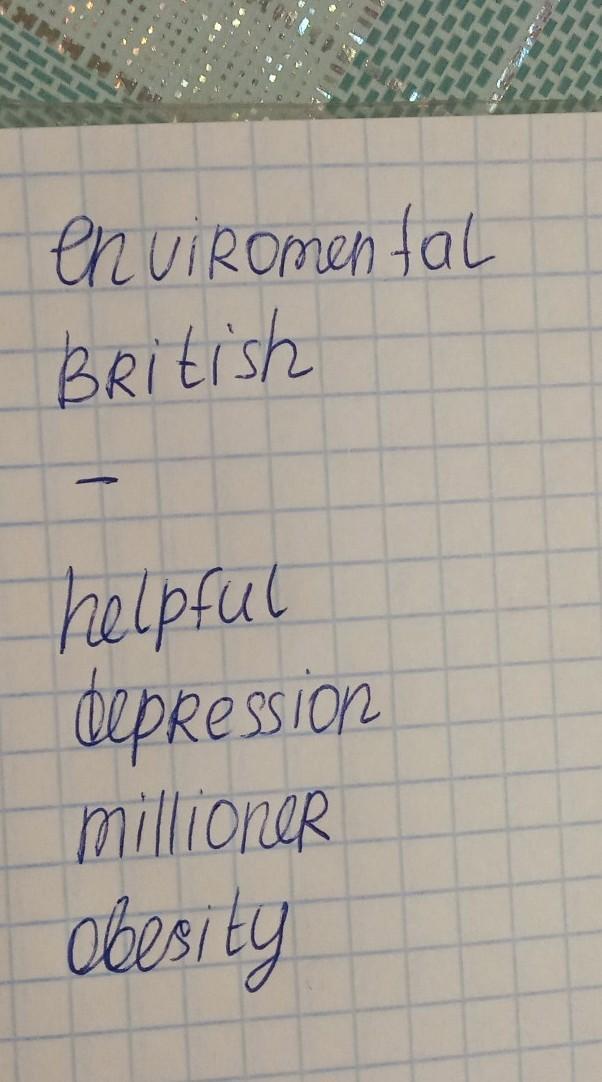 enviromental
British
–
helpful
depression
millioner
obesity